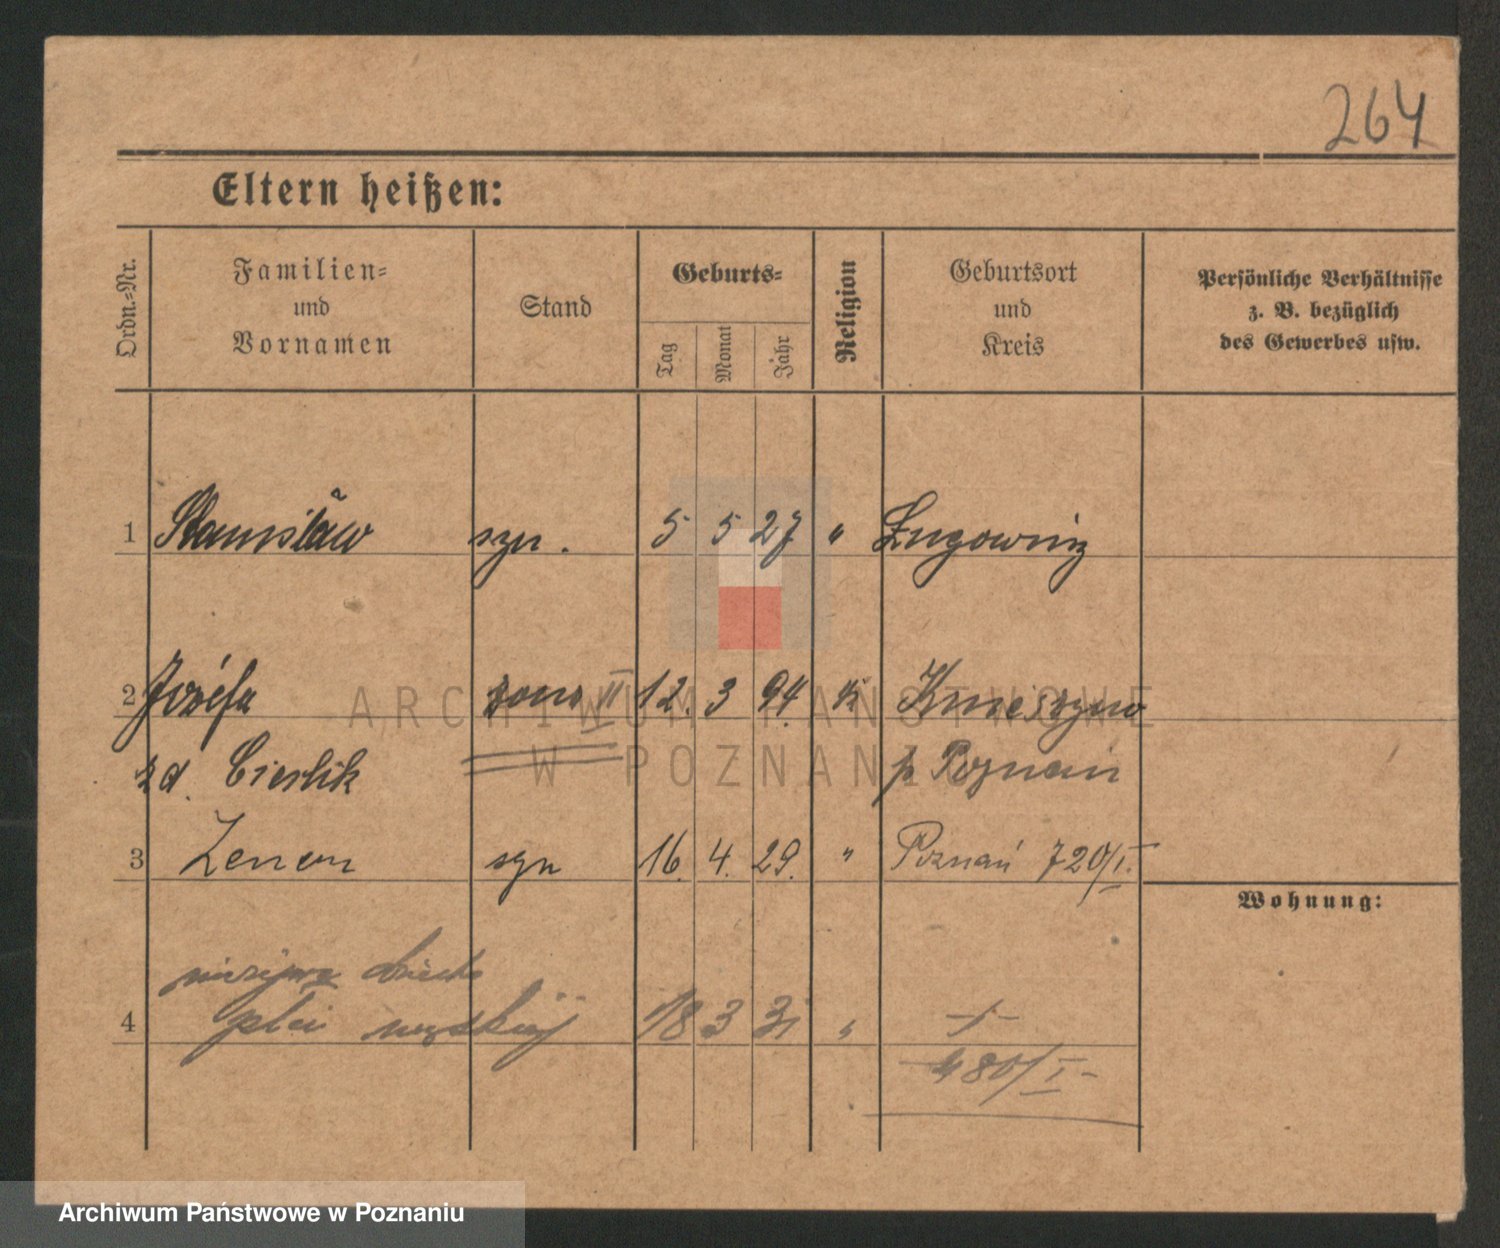 264
Eltern heißen:
Ordn.-Nr.
Familien-
und
Vornamen
Stand
Geburts-
Tag
Monat
Jahr
Religion
Geburtsort
und
Kreis
Persönliche Verhältnisse
z. B. bezüglich
des Gewerbes usw.
1 Stanisław syn. 5 5 27 "
2 Józefa żona II 12. 3 94.
zd. Cieslik p Poznań
3 Zenon syn 16. 4. 29. " Poznań 720/I.
Wohnung:
nieżywe dziecko
4 płci męskiej 18 3 31 "
480/I-
ARCHIWUM PAŃSTWOWE
W POZNANIU
Archiwum Państwowe w Poznaniu